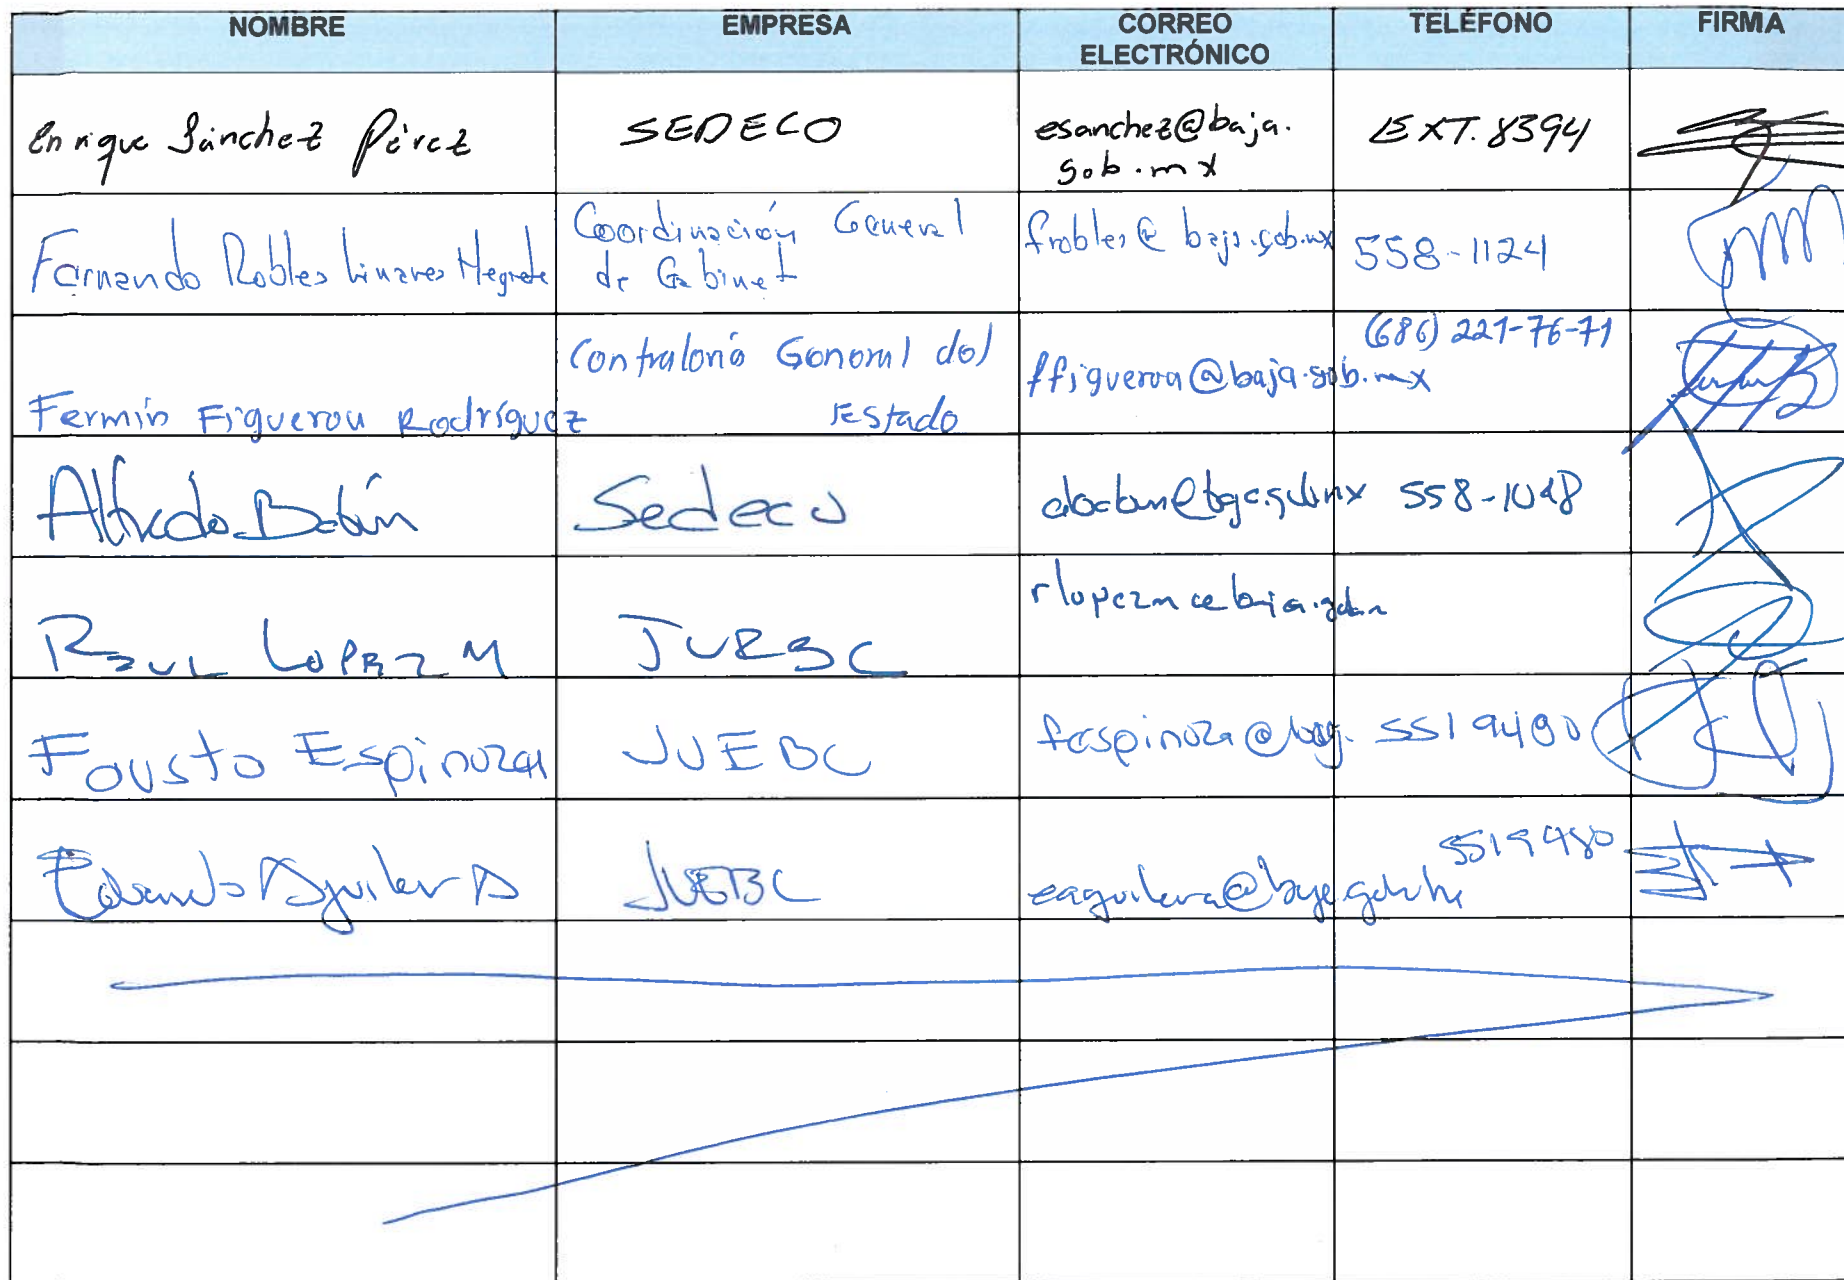 NOMBRE EMPRESA CORREO ELECTRÓNICO TELÉFONO FIRMA
Enrique Sánchez Pérez SEDECO esanchez@baja.
gob.mx EXT. 8394
Fernando Robles Linares Negrete Coordinación General
de Gabinet frobles@baja.gob.mx 558-1124
Fermín Figueroa Rodríguez Contraloría General del
Estado ffigueroa@baja.gob.mx (686) 221-76-71
Alfredo Babún Sedeco 558-1048
Raul Lopez M JUEBC
Fausto Espinoza JUEBC fespinoza@baj. 5519480
Eduardo Aguilar A JUEBC 5519480